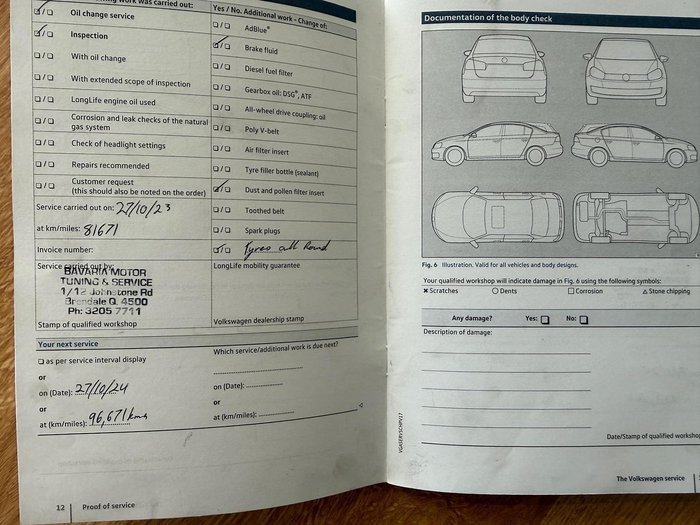 work was carried out:
Oil change service
Inspection
With oil change
With extended scope of inspection
LongLife engine oil used
Corrosion and leak checks of the natural
gas system
Check of headlight settings
Repairs recommended
Customer request
(this should also be noted on the order)
Service carried out on: 27/10/23
at km/miles: 81671
Invoice number:
Service carried out by:
BAVARIA MOTOR
TUNING & SERVICE
1/12 Johnstone Rd
Brendale Q. 4500
Ph: 3205 7711
Stamp of qualified workshop
Yes / No. Additional work - Change of:
AdBlue®
Brake fluid
Diesel fuel filter
Gearbox oil: DSG®, ATF
All-wheel drive coupling: oil
Poly V-belt
Air filter insert
Tyre filler bottle (sealant)
Dust and pollen filter insert
Toothed belt
Spark plugs
Tyres all Round
LongLife mobility guarantee
Volkswagen dealership stamp
Your next service
as per service interval display
or
on (Date): 27/10/24
or
at (km/miles): 96,671 kms
Which service/additional work is due next?
on (Date):
or
at (km/miles):
12 Proof of service
Documentation of the body check
Fig. 6 Illustration. Valid for all vehicles and body designs.
Your qualified workshop will indicate damage in Fig. 6 using the following symbols:
✖ Scratches ○ Dents □ Corrosion △ Stone chipping
Any damage? Yes: No:
Description of damage:
Date/Stamp of qualified workshop
VGASERVSCHPV17
The Volkswagen service